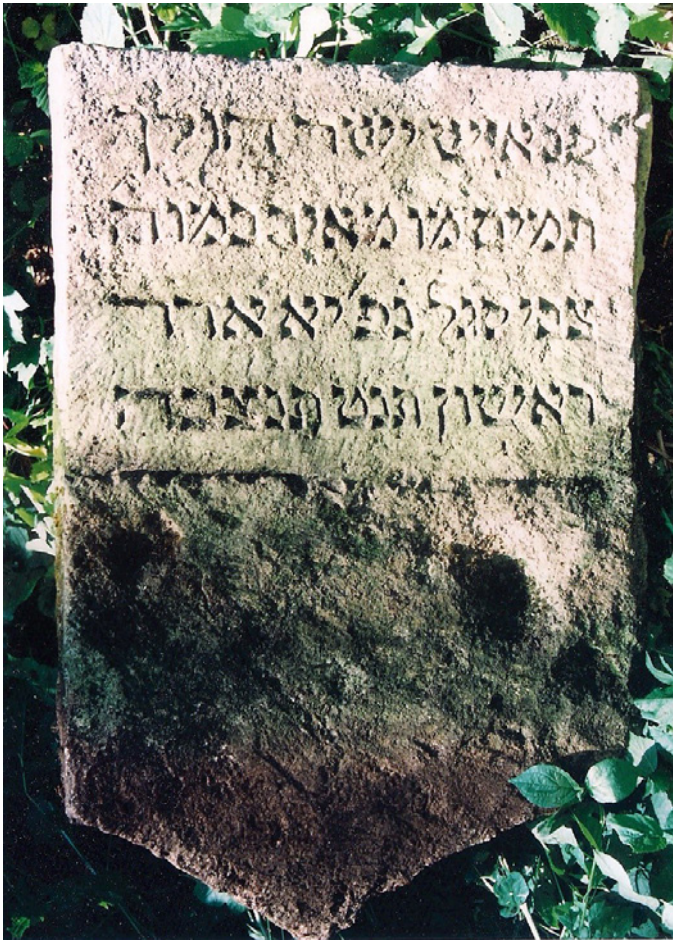 פנ איש ישר הולך
תמים מו מאיר במוה
צבי סגל נפ' יא אדר
ראישון תנט תנצבה